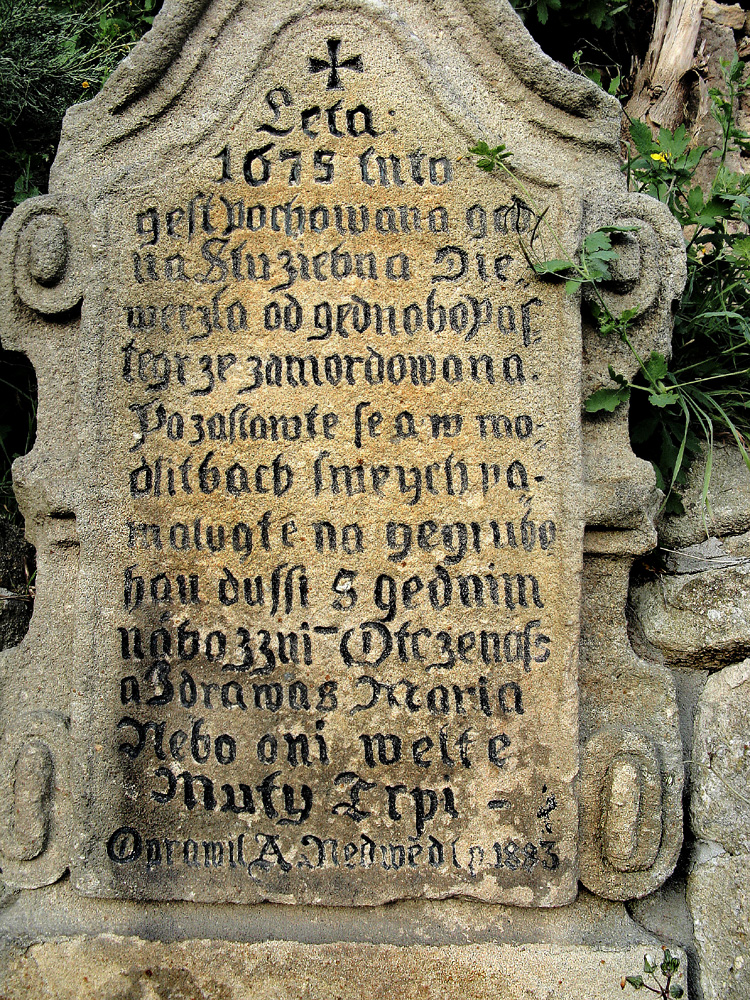 Leta:
1675 tuto
gest pochowana ged
na Služebna Die-
werzla od gednoho Pas-
tegrze zamordowana.
Pozastawte se a w mo-
dlitbach sweych pa-
matugte na gegi ubo
hau dussi S gednim
nábozzni- Otczenass
a Zdrawas Maria
Nebo oni welke
Muky Trpi -
Oprawil A Nedwěd l p 1883